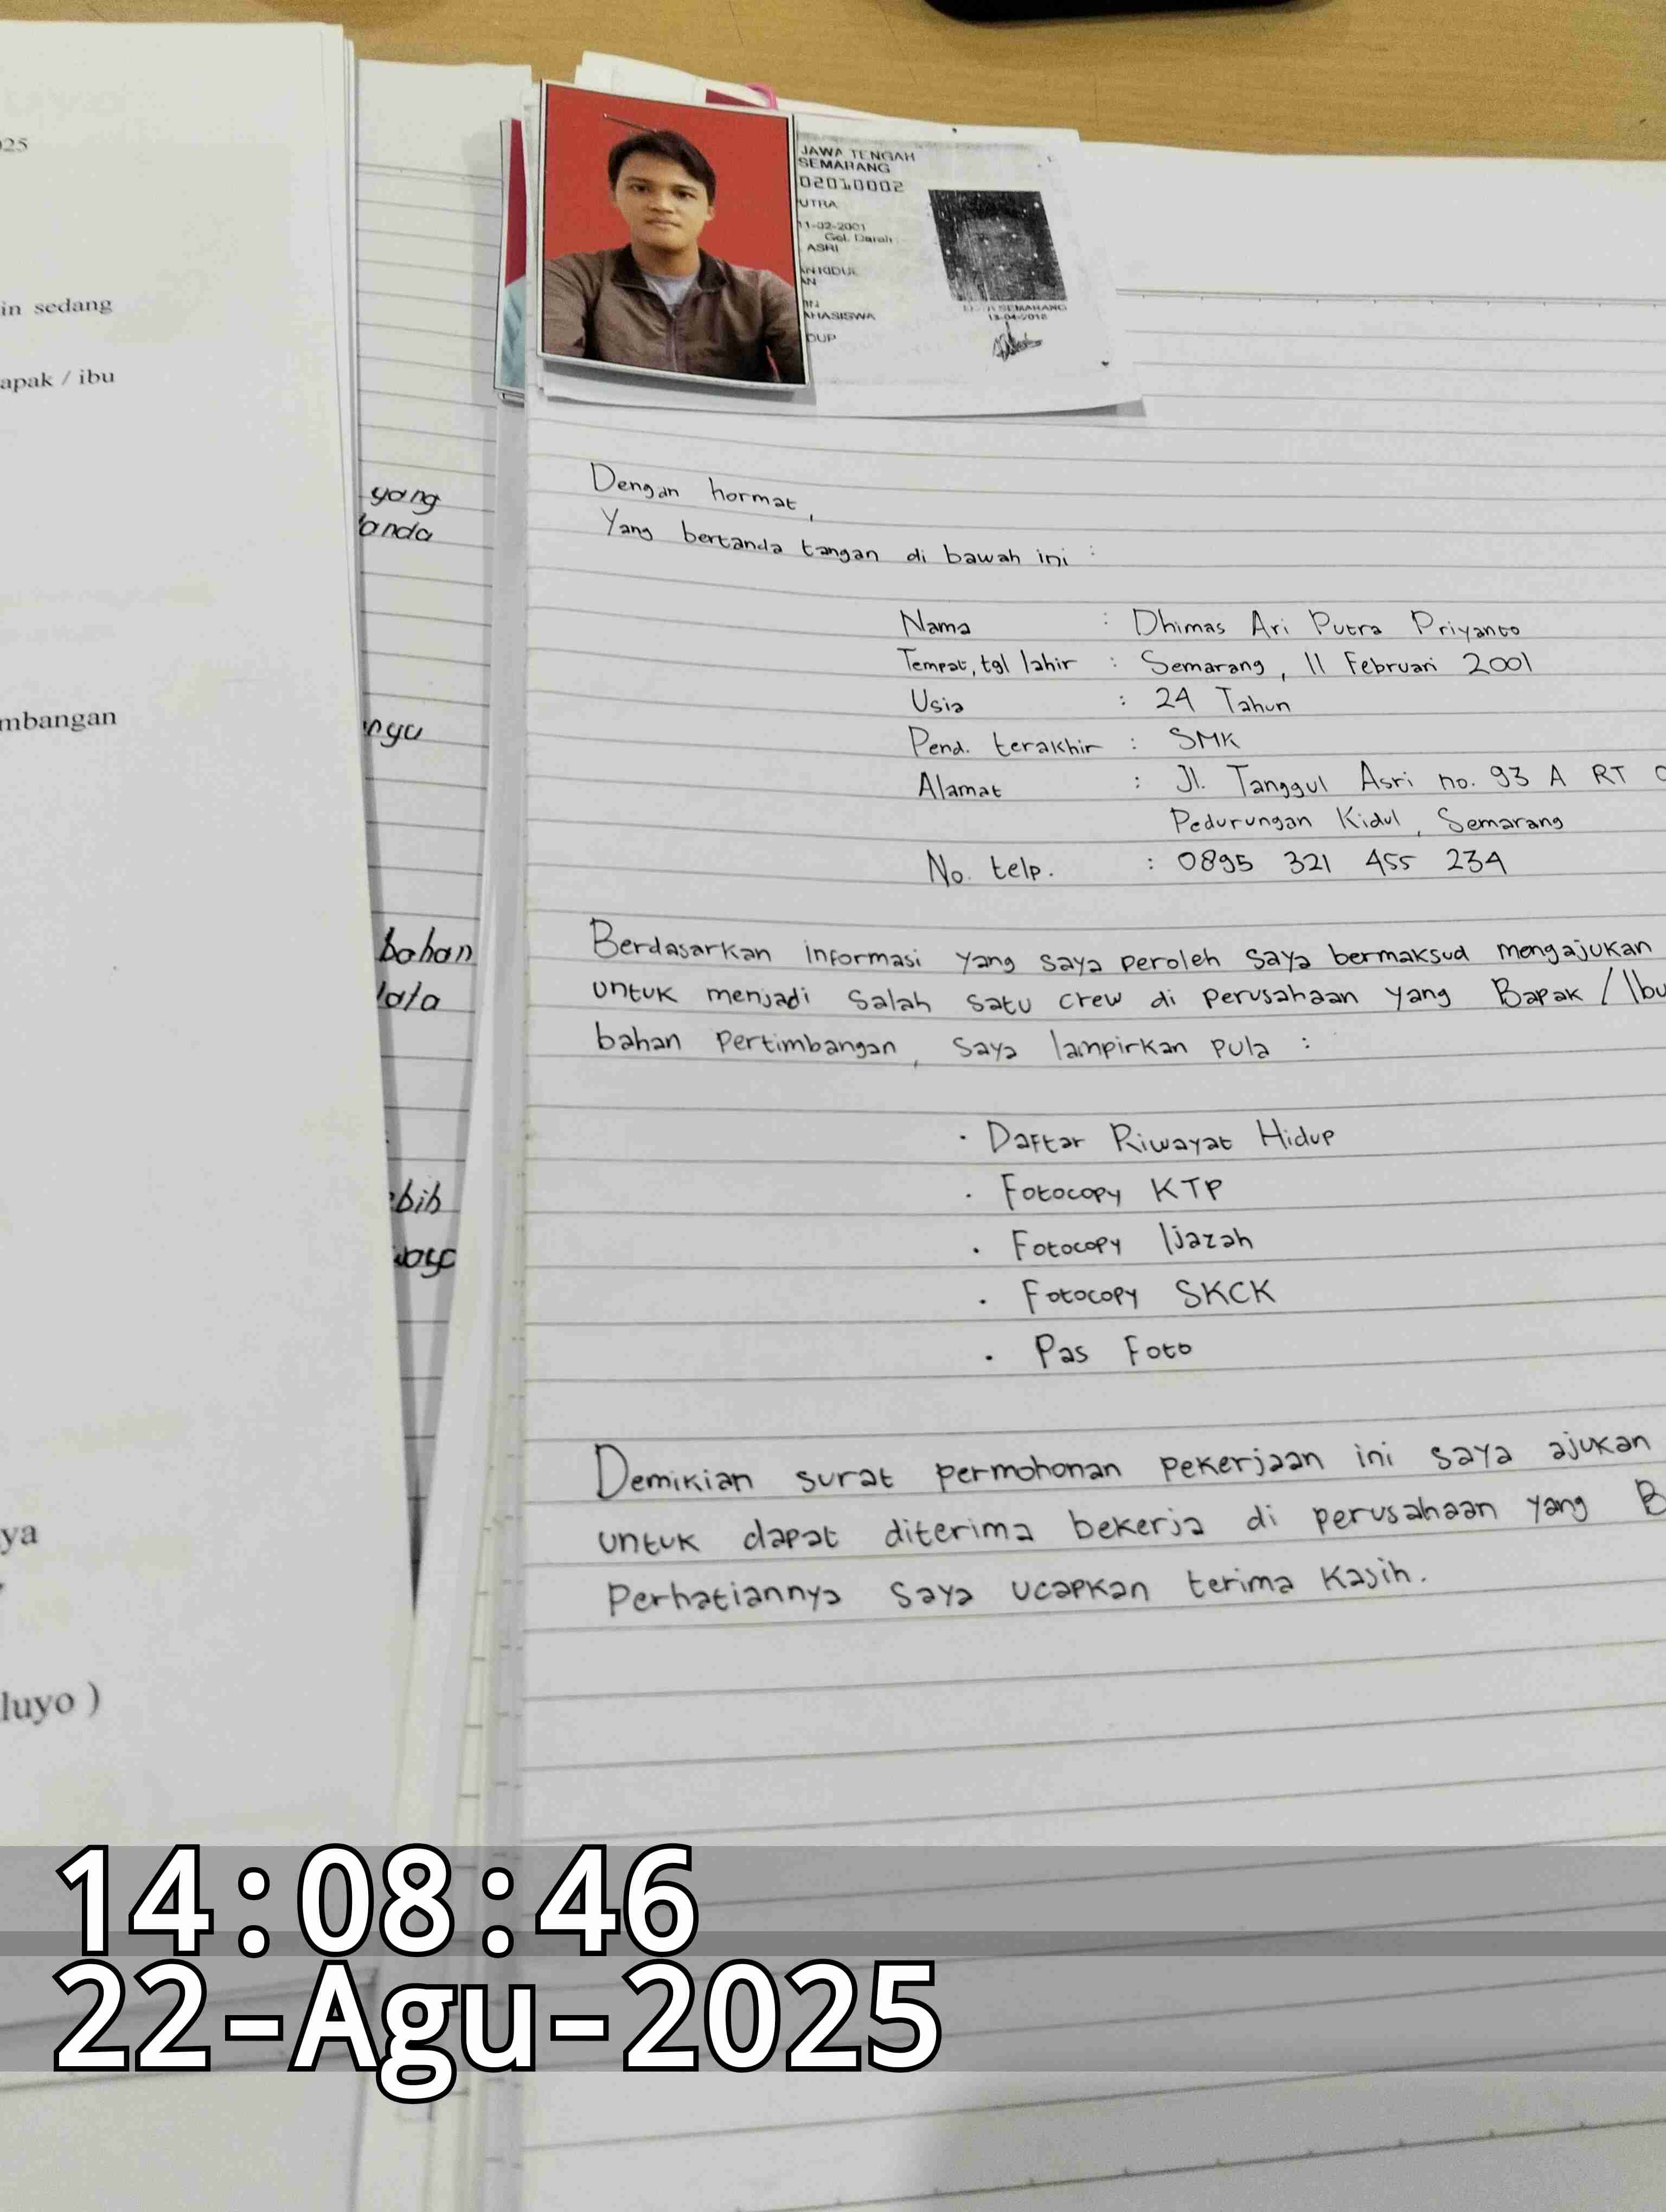 025
in sedang
apak / ibu
mbangan
ya
luyo )
yang
anda
nya
bahan
lata
ebih
JAWA TENGAH
SEMARANG
02010002
UTRA
11-02-2001
Gol. Darah
ASRI
AN KIDUL
AN
AHASISWA
DUP
SEMARANG
13-04-2018
Dengan hormat,
Yang bertanda tangan di bawah ini :
Nama : Dhimas Ari Putra Priyanto
Tempat, tgl lahir : Semarang, 11 Februari 2001
Usia : 24 Tahun
Pend. terakhir : SMK
Alamat : Jl. Tanggul Asri no. 93 A RT
Pedurungan Kidul, Semarang
No. telp. : 0895 321 455 234
Berdasarkan informasi yang saya peroleh saya bermaksud mengajukan
untuk menjadi salah satu crew di perusahaan yang Bapak / Ibu
bahan pertimbangan, saya lampirkan pula :
· Daftar Riwayat Hidup
· Fotocopy KTP
· Fotocopy Ijazah
· Fotocopy SKCK
· Pas Foto
Demikian surat permohonan pekerjaan ini saya ajukan
untuk dapat diterima bekerja di perusahaan yang B
Perhatiannya saya ucapkan terima kasih.
14:08:46
22-Agu-2025